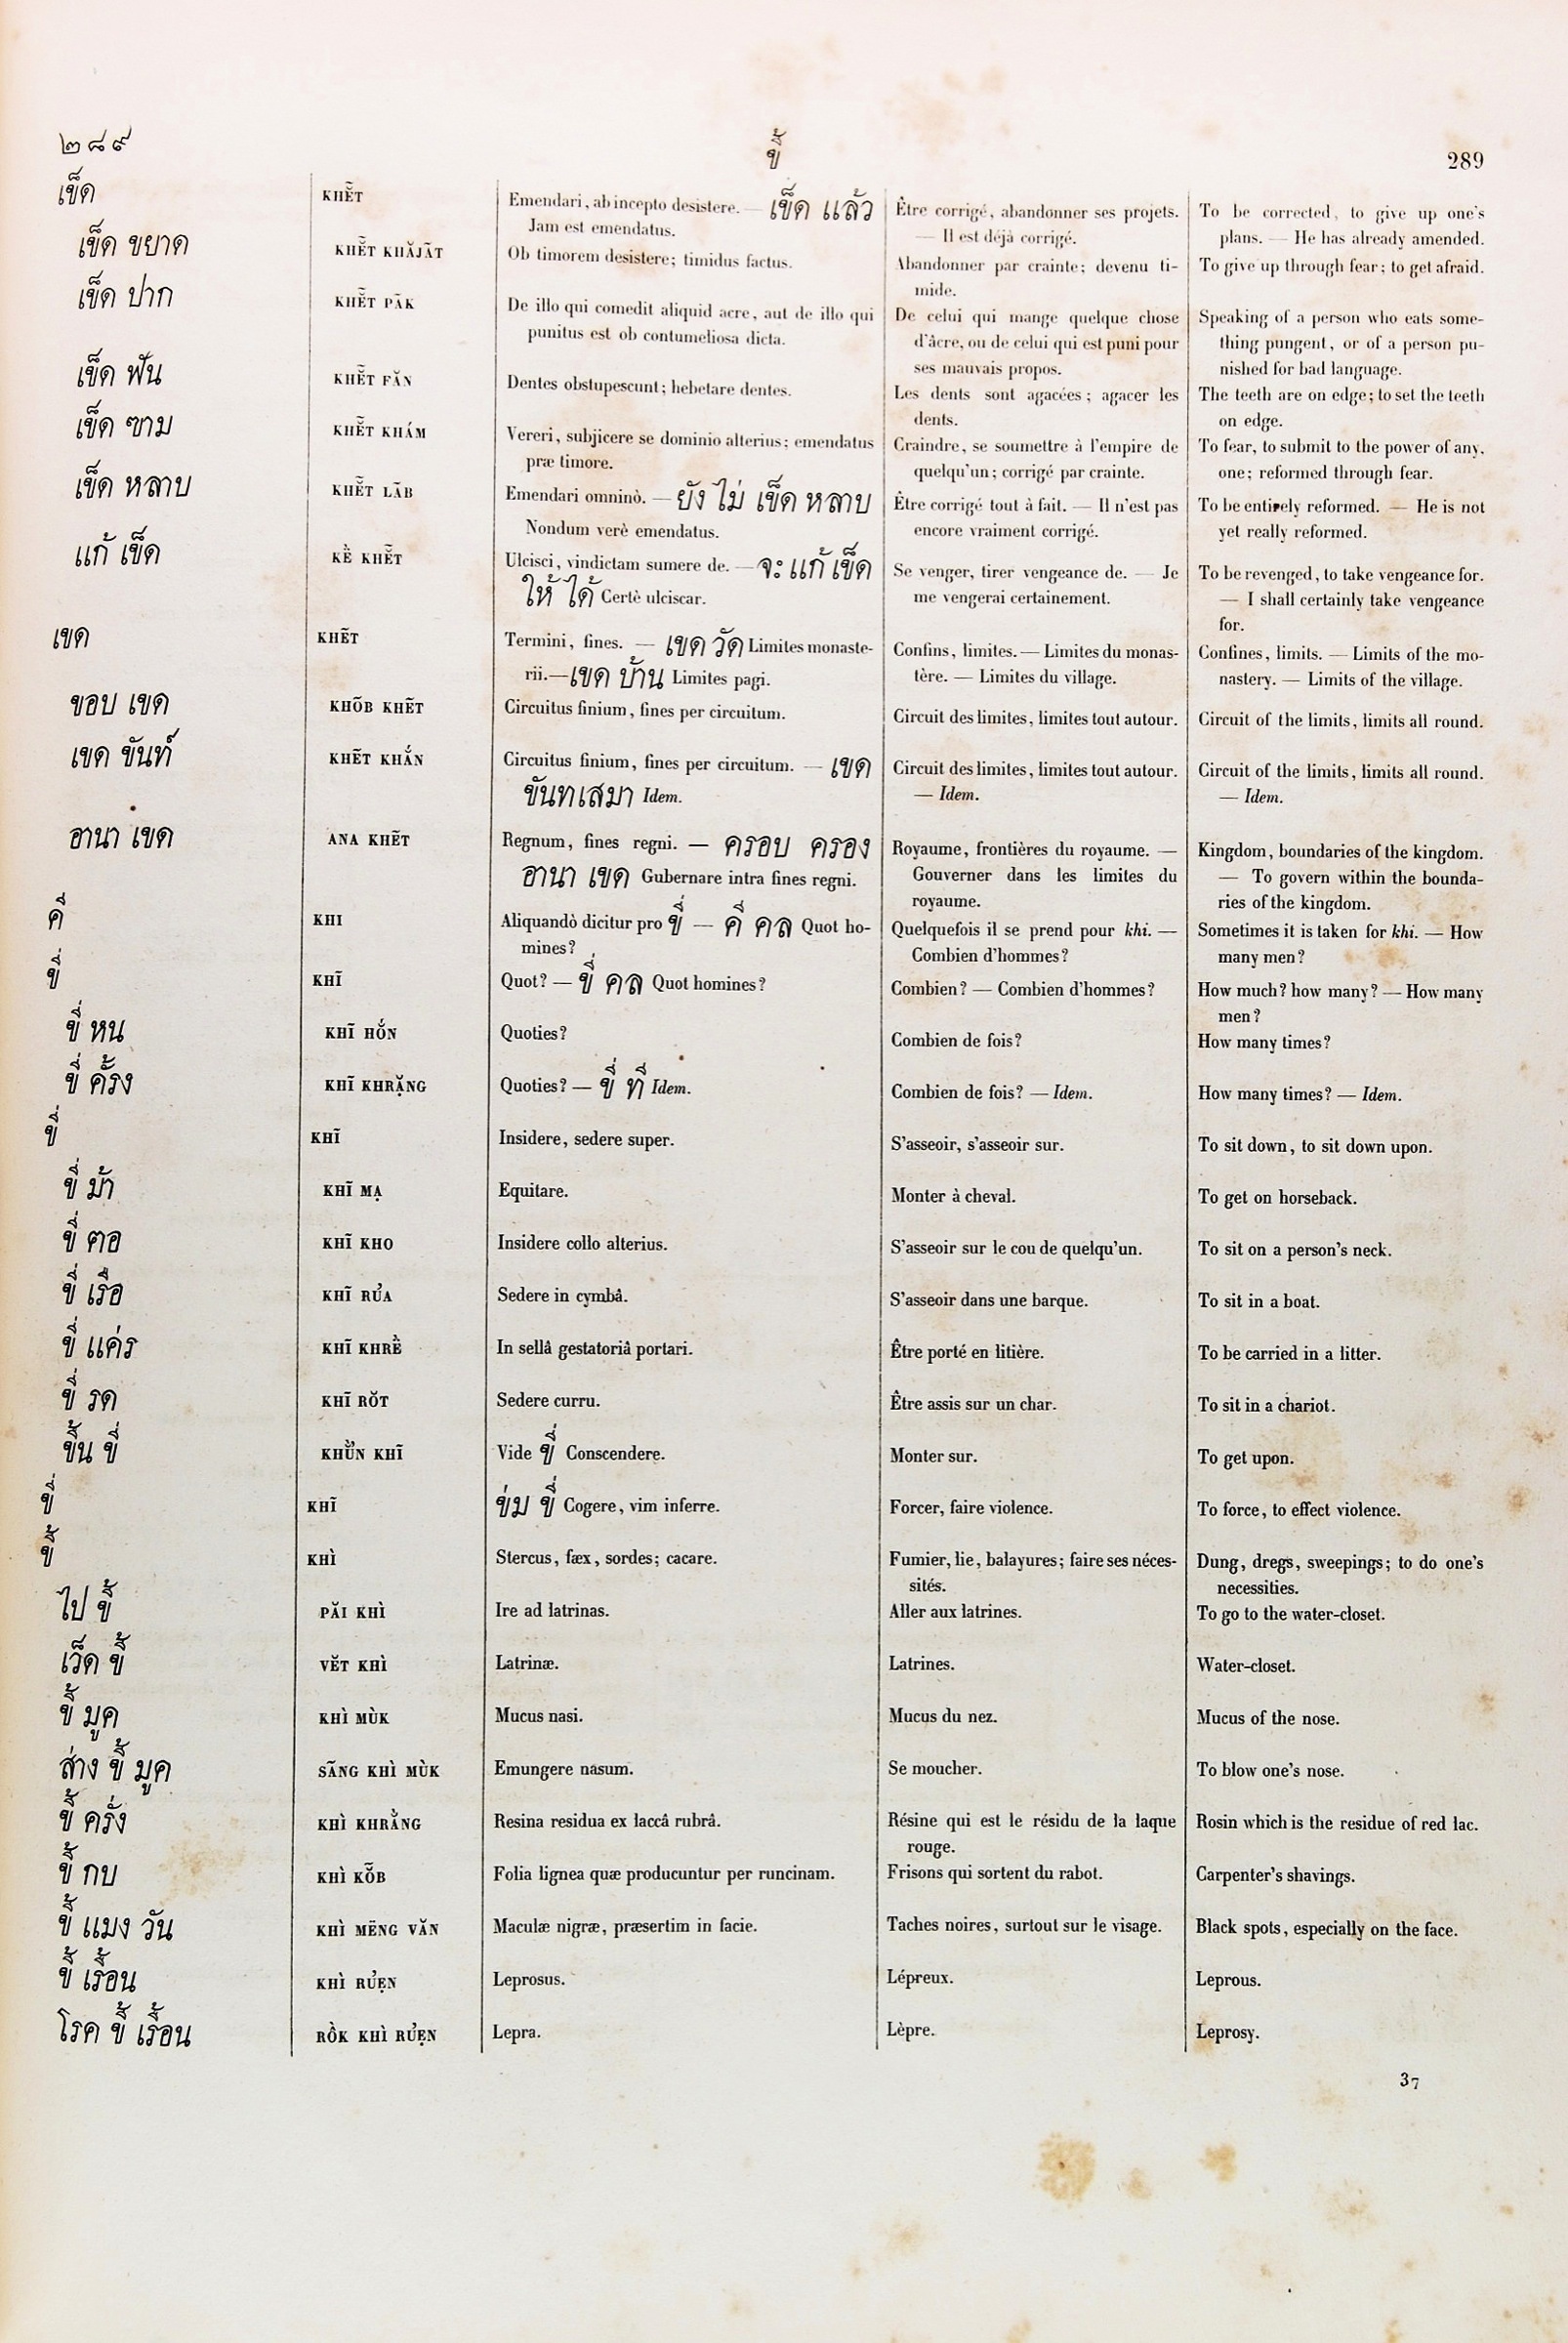 ๒๘๙ ขี้ 289
เข็ด KHĔ̃T Emendari, ab incepto desistere. — เข็ด แล้ว Être corrigé, abandonner ses projets. To be corrected, to give up one's
Jam est emendatus. — Il est déjà corrigé. plans. — He has already amended.
เข็ด ขยาด KHĔ̃T KHĂJÃT Ob timorem desistere; timidus factus. Abandonner par crainte; devenu ti- To give up through fear; to get afraid.
mide.
เข็ด ปาก KHĔ̃T PÃK De illo qui comedit aliquid acre, aut de illo qui De celui qui mange quelque chose Speaking of a person who eats some-
punitus est ob contumeliosa dicta. d'âcre, ou de celui qui est puni pour thing pungent, or of a person pu-
ses mauvais propos. nished for bad language.
เข็ด ฟัน KHĔ̃T FĂN Dentes obstupescunt; hebetare dentes. Les dents sont agacées; agacer les The teeth are on edge; to set the teeth
dents. on edge.
เข็ด ขาม KHĔ̃T KHÁM Vereri, subjicere se dominio alterius; emendatus Craindre, se soumettre à l'empire de To fear, to submit to the power of any.
præ timore. quelqu'un; corrigé par crainte. one; reformed through fear.
เข็ด หลาบ KHĔ̃T LÃB Emendari omninò. — ยัง ไม่ เข็ด หลาบ Être corrigé tout à fait. — Il n'est pas To be entirely reformed. — He is not
Nondum verè emendatus. encore vraiment corrigé. yet really reformed.
แก้ เข็ด KẼ̀ KHĔ̃T Ulcisci, vindictam sumere de. — จะ แก้ เข็ด Se venger, tirer vengeance de. — Je To be revenged, to take vengeance for.
ให้ ได้ Certè ulciscar. me vengerai certainement. — I shall certainly take vengeance
for.
เขด KHẼT Termini, fines. — เขด วัด Limites monaste- Confins, limites. — Limites du monas- Confines, limits. — Limits of the mo-
rii. — เขด บ้าน Limites pagi. tère. — Limites du village. nastery. — Limits of the village.
ขอบ เขด KHÕB KHẼT Circuitus finium, fines per circuitum. Circuit des limites, limites tout autour. Circuit of the limits, limits all round.
เขด ขันท์ KHẼT KHẮN Circuitus finium, fines per circuitum. — เขด Circuit des limites, limites tout autour. Circuit of the limits, limits all round.
ขันทเสมา Idem. — Idem. — Idem.
อานา เขด ANA KHẼT Regnum, fines regni. — ครอบ ครอง Royaume, frontières du royaume. — Kingdom, boundaries of the kingdom.
อานา เขด Gubernare intra fines regni. Gouverner dans les limites du — To govern within the bounda-
royaume. ries of the kingdom.
คี KHI Aliquandò dicitur pro ขี่ — คี คล Quot ho- Quelquefois il se prend pour khi. — Sometimes it is taken for khi. — How
mines? Combien d'hommes? many men?
ขี่ KHĨ Quot? — ขี่ คล Quot homines? Combien? — Combien d'hommes? How much? how many? — How many
men?
ขี่ หน KHĨ HỐN Quoties? Combien de fois? How many times?
ขี่ ครั้ง KHĨ KHRẶNG Quoties? — ขี่ ที Idem. Combien de fois? — Idem. How many times? — Idem.
ขี่ KHĨ Insidere, sedere super. S'asseoir, s'asseoir sur. To sit down, to sit down upon.
ขี่ ม้า KHĨ MẠ Equitare. Monter à cheval. To get on horseback.
ขี่ ฅอ KHĨ KHO Insidere collo alterius. S'asseoir sur le cou de quelqu'un. To sit on a person's neck.
ขี่ เรือ KHĨ RU̓A Sedere in cymbâ. S'asseoir dans une barque. To sit in a boat.
ขี่ แคร่ KHĨ KHRẼ̀ In sellâ gestatoriâ portari. Être porté en litière. To be carried in a litter.
ขี่ รด KHĨ RŎT Sedere curru. Être assis sur un char. To sit in a chariot.
ขึ้น ขี่ KHỪ̓N KHĨ Vide ขี่ Conscendere. Monter sur. To get upon.
ขี่ KHĨ ข่ม ขี่ Cogere, vim inferre. Forcer, faire violence. To force, to effect violence.
ขี้ KHÌ Stercus, fæx, sordes; cacare. Fumier, lie, balayures; faire ses néces- Dung, dregs, sweepings; to do one's
sités. necessities.
ไป ขี้ PĂI KHÌ Ire ad latrinas. Aller aux latrines. To go to the water-closet.
เว็ด ขี้ VĔT KHÌ Latrinæ. Latrines. Water-closet.
ขี้ มูค KHÌ MÙK Mucus nasi. Mucus du nez. Mucus of the nose.
ส่าง ขี้ มูค SÃNG KHÌ MÙK Emungere nasum. Se moucher. To blow one's nose.
ขี้ ครั่ง KHÌ KHRẰNG Resina residua ex laccâ rubrâ. Résine qui est le résidu de la laque Rosin which is the residue of red lac.
rouge.
ขี้ กบ KHÌ KŎ̃B Folia lignea quæ producuntur per runcinam. Frisons qui sortent du rabot. Carpenter's shavings.
ขี้ แมง วัน KHÌ MËNG VĂN Maculæ nigræ, præsertim in facie. Taches noires, surtout sur le visage. Black spots, especially on the face.
ขี้ เรื้อน KHÌ RU̓ẸN Leprosus. Lépreux. Leprous.
โรค ขี้ เรื้อน RỒK KHÌ RU̓ẸN Lepra. Lèpre. Leprosy.
37